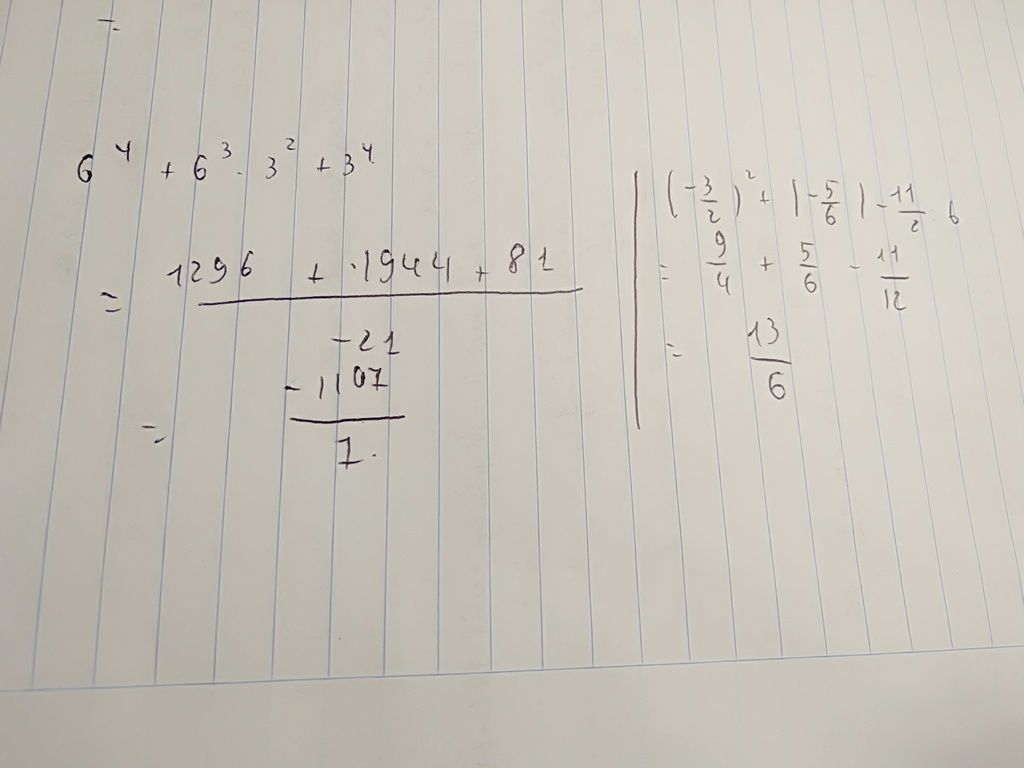 =
6^4 + 6^3 . 3^2 + 3^4
= 1296 + .1944 + 81
-21
= -1107
7.
(-3/2)^2 + |-5/6| - 11/2 : 6
= 9/4 + 5/6 - 11/12
= 13/6